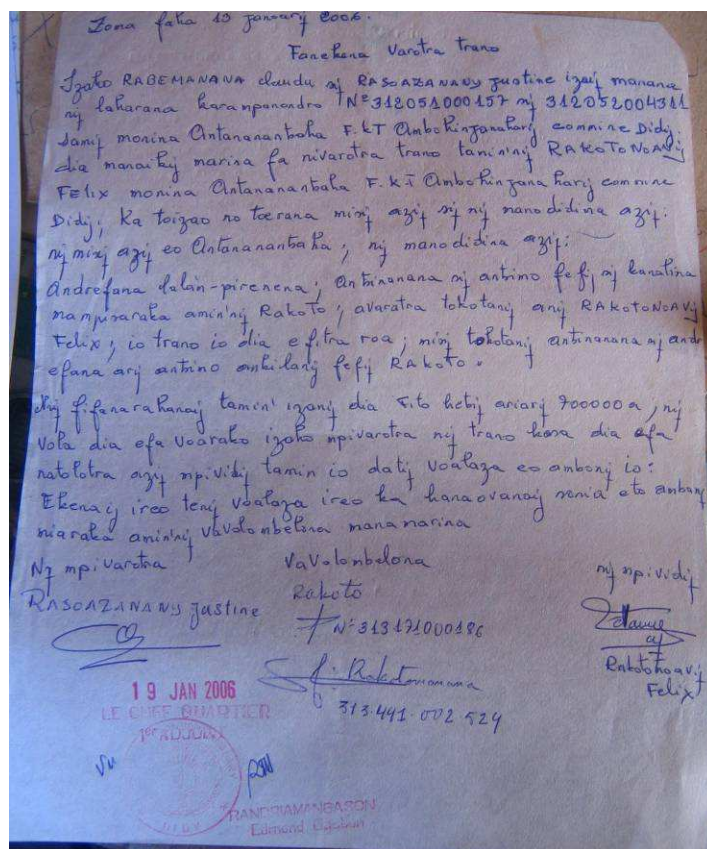 Zoma faha 13 janoary 2006.
Fanekena varotra trano
Izaho RABEMANANA claude sy RASOAZANANY Justine izay manana
ny laharana karampanondro N° 312051000157 sy 312052004311
samy monina Antanananbaha F.KT Ambohinjanahary commine Didy;
dia manaiky marina fa nivarotra trano tamin'ny RAKOTONOAVY
FELIX monina Antanananbaha F.KT Ambohinjanahary commine
Didy; Ka toizao no toerana misy azy sy ny manodidina azy:
ny misy azy eo Antanananbaha; ny manodidina azy:
Andrefana lalan-pirenena; Antsinanana sy antsimo fefy sy kanalina
mampisaraka amin'ny Rakoto; avaratra tokotany any RAKOTONOAVY
Felix; io trano io dia efitra roa; misy tokotany antsinanana sy andr
efana ary antsimo ankilany fefy RAKOTO.
Ny fifanarahanay tamin' izany dia Fito hetsy ariary 700000a, ny
vola dia efa voarako izaho mpivarotra ny trano kosa dia efa
natolotra azy mpividy tamin io daty voalaza eo ambony io:
Ekenay ireo teny voalaza ireo ka hanaovanay sonia eto ambany
miaraka amin'ny vavolombelona manamarina
Ny mpivarotra
Vavolombelona
ny mpividy
RASOAZANANY Justine
Rakoto
N° 313171000186
Rakotonoavy
Felix
Rakotomanana
313.441.002 524
19 JAN 2006
LE CHEF QUARTIER
1er ADJOINT
Vu
RANDRIAMANGASON
Edmond